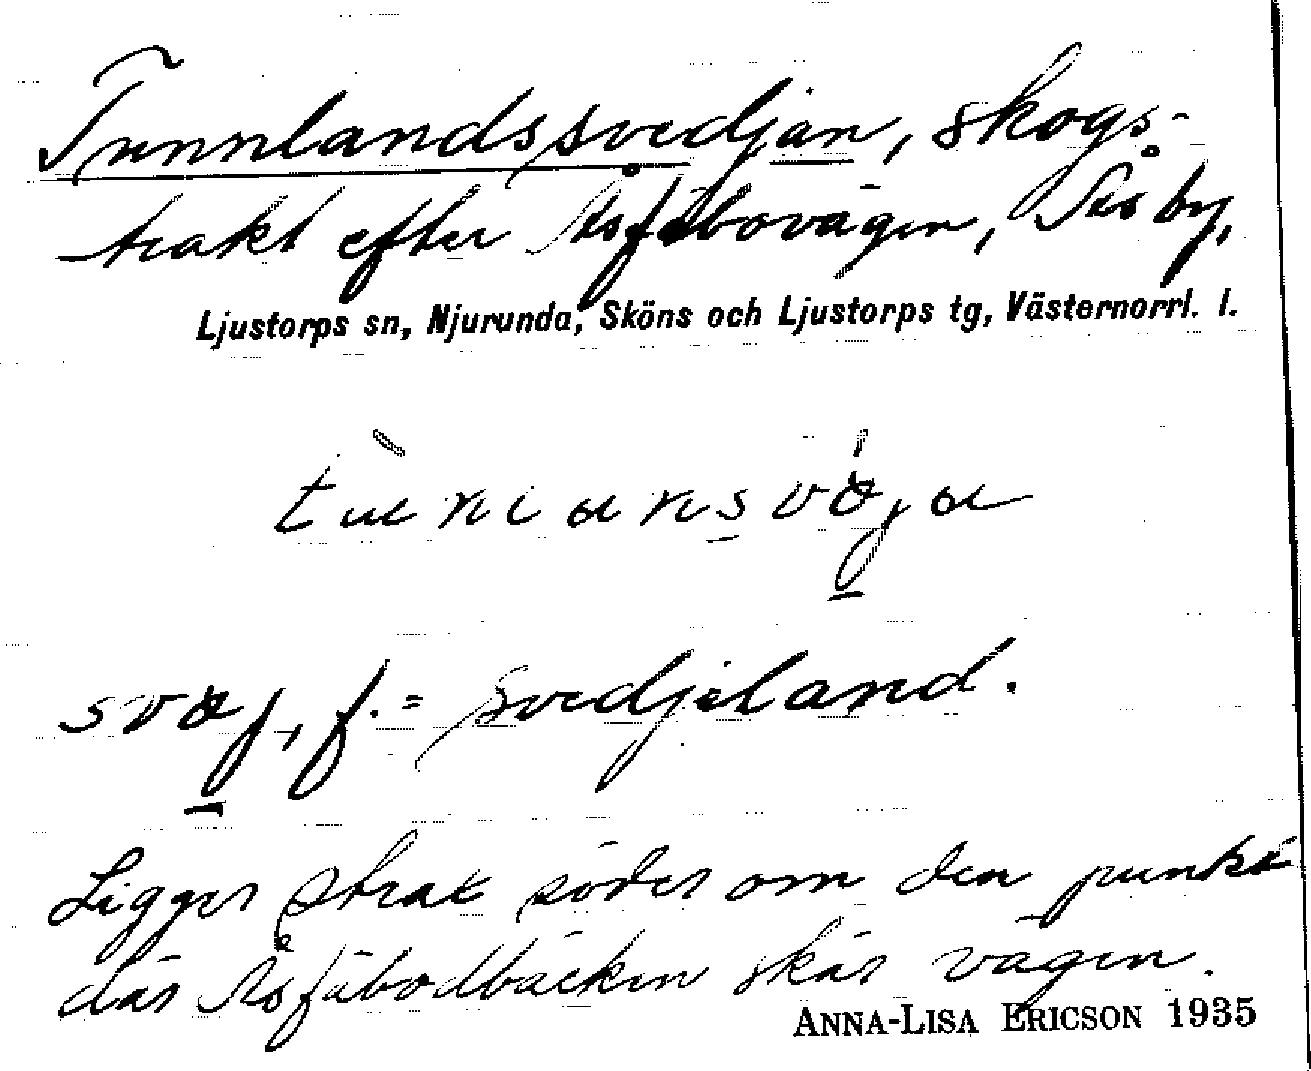 Tunnlandssvedjan, skogs-
trakt efter Åsfäbovägen, Ås by,
Ljustorps sn, Njurunda, Sköns och Ljustorps tg, Västernorrl. l.
f. = svedjeland.
Ligger strax söder om den punkt
där Åsfäbodbäcken skär vägen.
ANNA-LISA ERICSON 1935